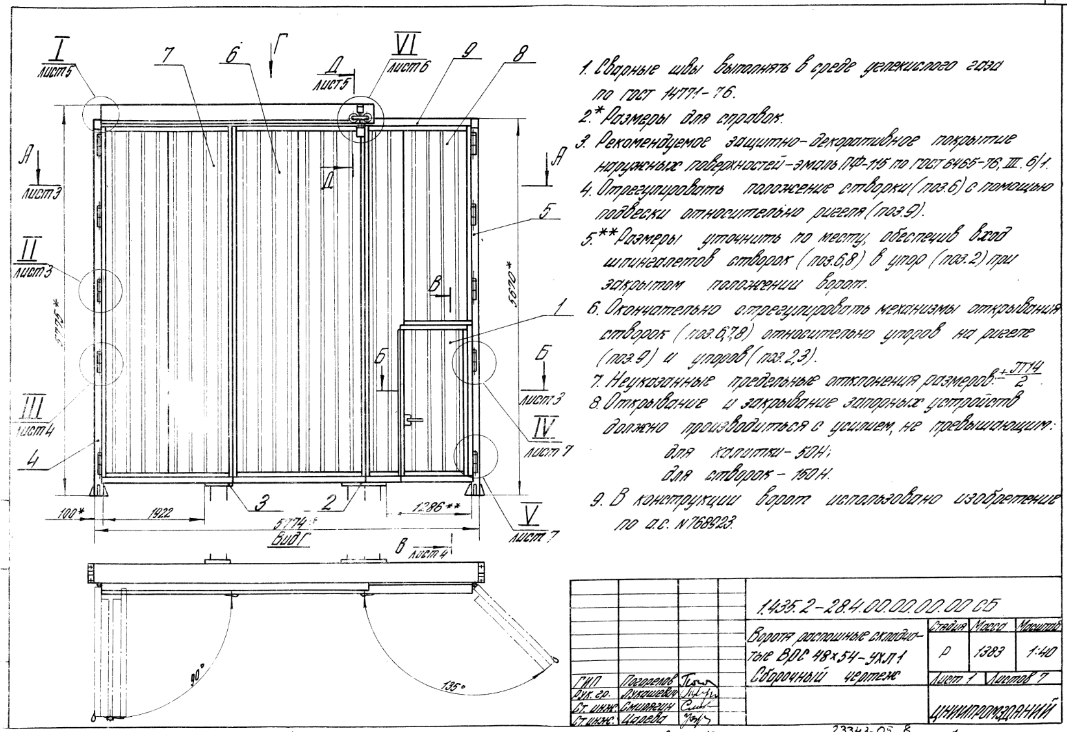 I
лист5
7
6
Г
Д
лист5
VI
лист6
9
8
А
лист3
Д
А
лист3
5
II
лист3
В
1
Б
Б
лист3
III
лист4
IV
лист7
4
5690*
3
2
V
лист7
100*
1922
5774*
1286**
Вид Г
В
лист4
90°
135°
1. Сварные швы выполнять в среде углекислого газа
по ГОСТ 14771-76.
2.* Размеры для справок.
3. Рекомендуемое защитно-декоративное покрытие
наружных поверхностей-эмаль ПФ-115 по ГОСТ 6465-76, III. 6/1.
4. Отрегулировать положение створки (поз.6) с помощью
подвески относительно ригеля (поз.9).
5.** Размеры уточнить по месту, обеспечив вход
шпингалетов створок (поз.6,8) в упор (поз.2) при
закрытом положении ворот.
6. Окончательно отрегулировать механизмы открывания
створок (поз.6,7,8) относительно упоров на ригеле
(поз.9) и упоров (поз.2,3).
7. Неуказанные предельные отклонения размеров: ± JT14/2
8. Открывание и закрывание запорных устройств
должно производиться с усилием, не превышающим:
для калитки - 50Н;
для створок - 150Н.
9. В конструкции ворот использовано изобретение
по а.с. N768923.
1.435.2-28.4.00.00.00.00 СБ
Ворота распашные складча-
тые ВРС 48×54-УХЛ1
Сборочный чертеж
Стадия Масса Масштаб
Р 1383 1:40
Лист 1 Листов 7
ГИП
Рук. гр. Лукашевич
Ст. инж.
Ст. инж.
ЦНИИПРОМЗДАНИЙ